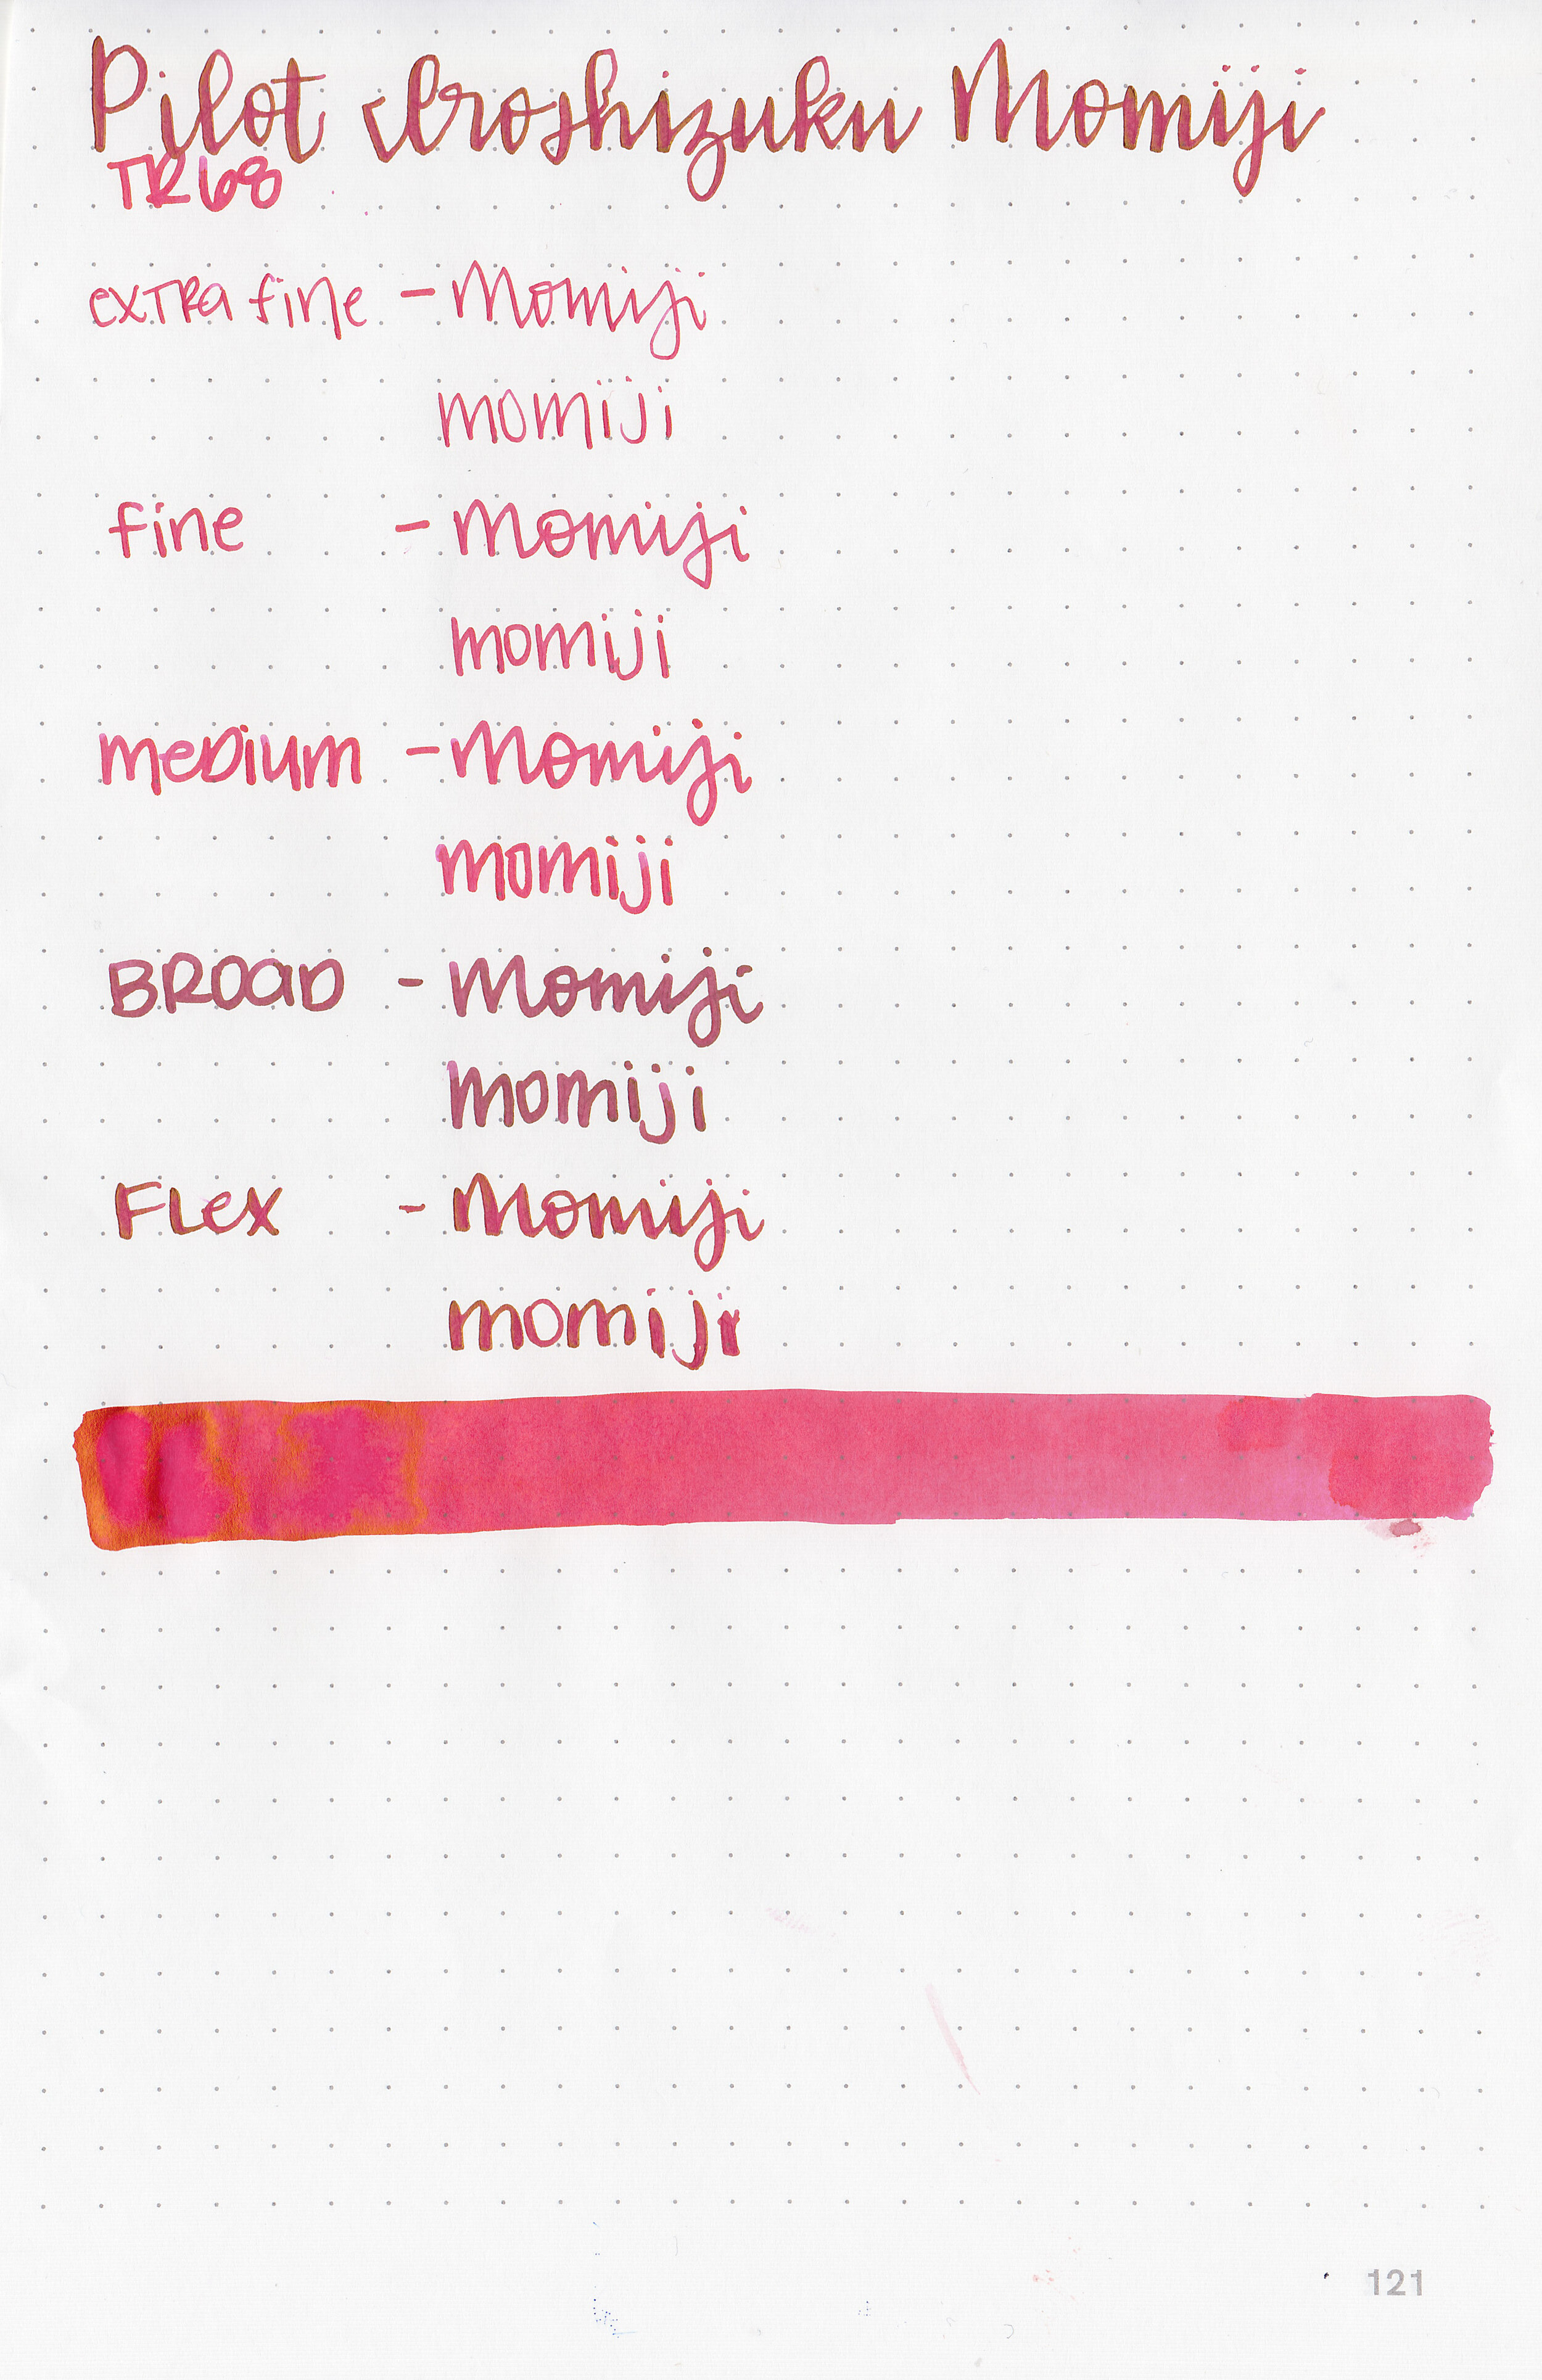 Pilot Iroshizuku Momiji
TR68
extra fine - Momiji
momiji
fine - Momiji
momiji
medium - Momiji
momiji
BROAD - Momiji
momiji
FLex - Momiji
momiji
121